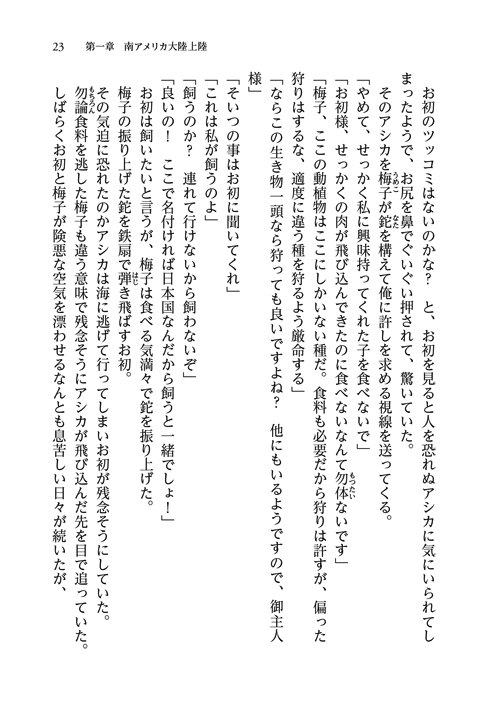 23　第一章　南アメリカ大陸上陸
　お初のツッコミはないのかな？　と、お初を見ると人を恐れぬアシカに気にいられてし
まったようで、お尻を鼻でぐいぐい押されて、驚いていた。
　そのアシカを梅子が鉈を構えて俺に許しを求める視線を送ってくる。
「やめて、せっかく私に興味持ってくれた子を食べないで」
「お初様、せっかくの肉が飛び込んできたのに食べないなんて勿体ないです」
「梅子、ここの動植物はここにしかいない種だ。食料も必要だから狩りは許すが、偏った
狩りはするな、適度に違う種を狩るよう厳命する」
「ならこの生き物一頭なら狩っても良いですよね？　他にもいるようですので、御主人
様」
「そいつの事はお初に聞いてくれ」
「これは私が飼うのよ」
「飼うのか？　連れて行けないから飼わないぞ」
「良いの！　ここで名付ければ日本国なんだから飼うと一緒でしょ！」
　お初は飼いたいと言うが、梅子は食べる気満々で鉈を振り上げた。
　梅子の振り上げた鉈を鉄扇で弾き飛ばすお初。
　その気迫に恐れたのかアシカは海に逃げて行ってしまいお初が残念そうにしていた。
　勿論食料を逃した梅子も違う意味で残念そうにアシカが飛び込んだ先を目で追っていた。
　しばらくお初と梅子が険悪な空気を漂わせるなんとも息苦しい日々が続いたが、